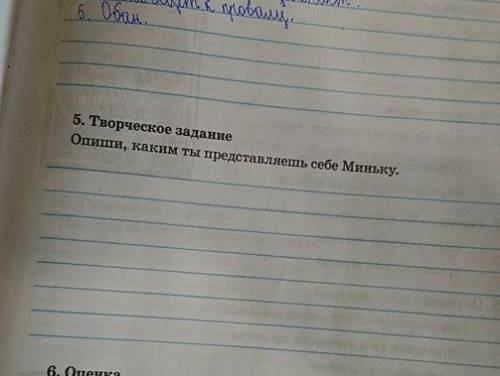 к провалу.
6. Обан.
5. Творческое задание
Опиши, каким ты представляешь себе Миньку.
6. Оценка